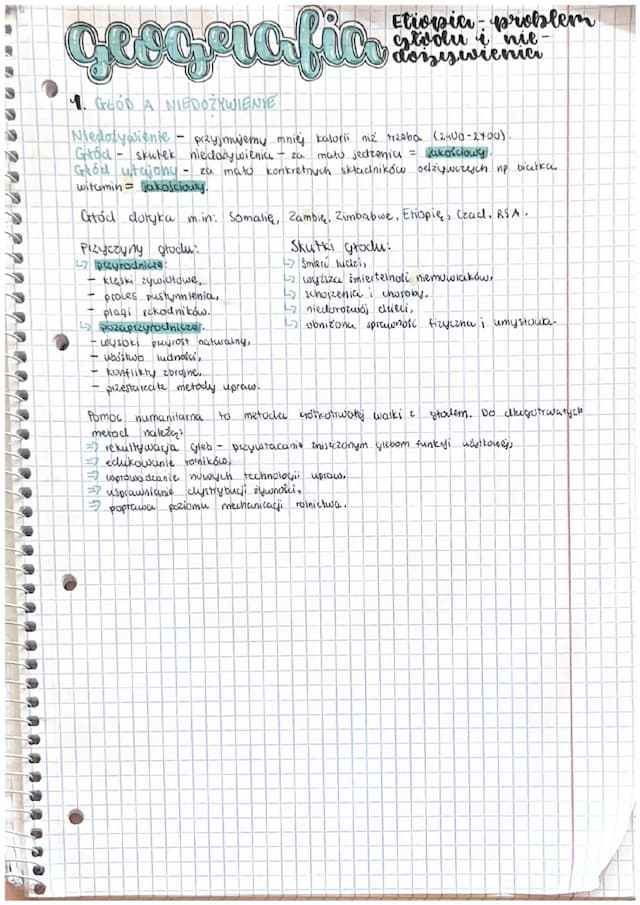 geografia
Etiopia - problem
głodu i nie-
dożywienia
1. GŁÓD A NIEDOŻYWIENIE
Niedożywienie - przyjmujemy mniej kalorii niż trzeba (2400-2700).
Głód - skutek niedożywienia - za mało jedzenia = jakościowy.
Głód utajony - za mało konkretnych składników odżywczych np. białka,
witamin = jakościowy.
Głód dotyka m.in: Somalię, Zambię, Zimbabwe, Etiopię, Czad, RSA.
Przyczyny głodu:
↳ przyrodnicze:
- klęski żywiołowe,
- proces pustynnienia,
- plagi szkodników.
↳ pozaprzyrodnicze:
- wysoki przyrost naturalny,
- ubóstwo ludności,
- konflikty zbrojne,
- przestarzałe metody upraw.
Skutki głodu:
↳ śmierć ludzi,
↳ wyższa śmiertelność niemowlaków,
↳ schorzenia i choroby,
↳ niedorozwój dzieci,
↳ obniżona sprawność fizyczna i umysłowa.
Pomoc humanitarna to metoda krótkotrwałej walki z głodem. Do długotrwałych
metod należą:
⇒ rekultywacja gleb - przywracanie zniszczonym glebom funkcji użytkowej,
⇒ edukowanie rolników,
⇒ wprowadzanie nowych technologii upraw,
⇒ usprawnianie dystrybucji żywności,
⇒ poprawa poziomu mechanizacji rolnictwa.